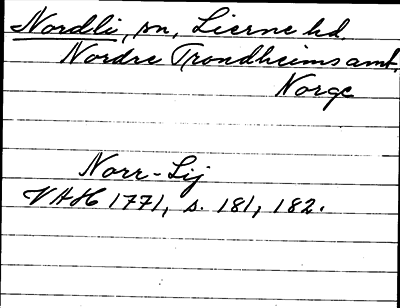 Nordli, sn, Lierne hd.
Nordre Trondheims amt.
Norge
Norr-Lij
VAH 1771, s. 181, 182.